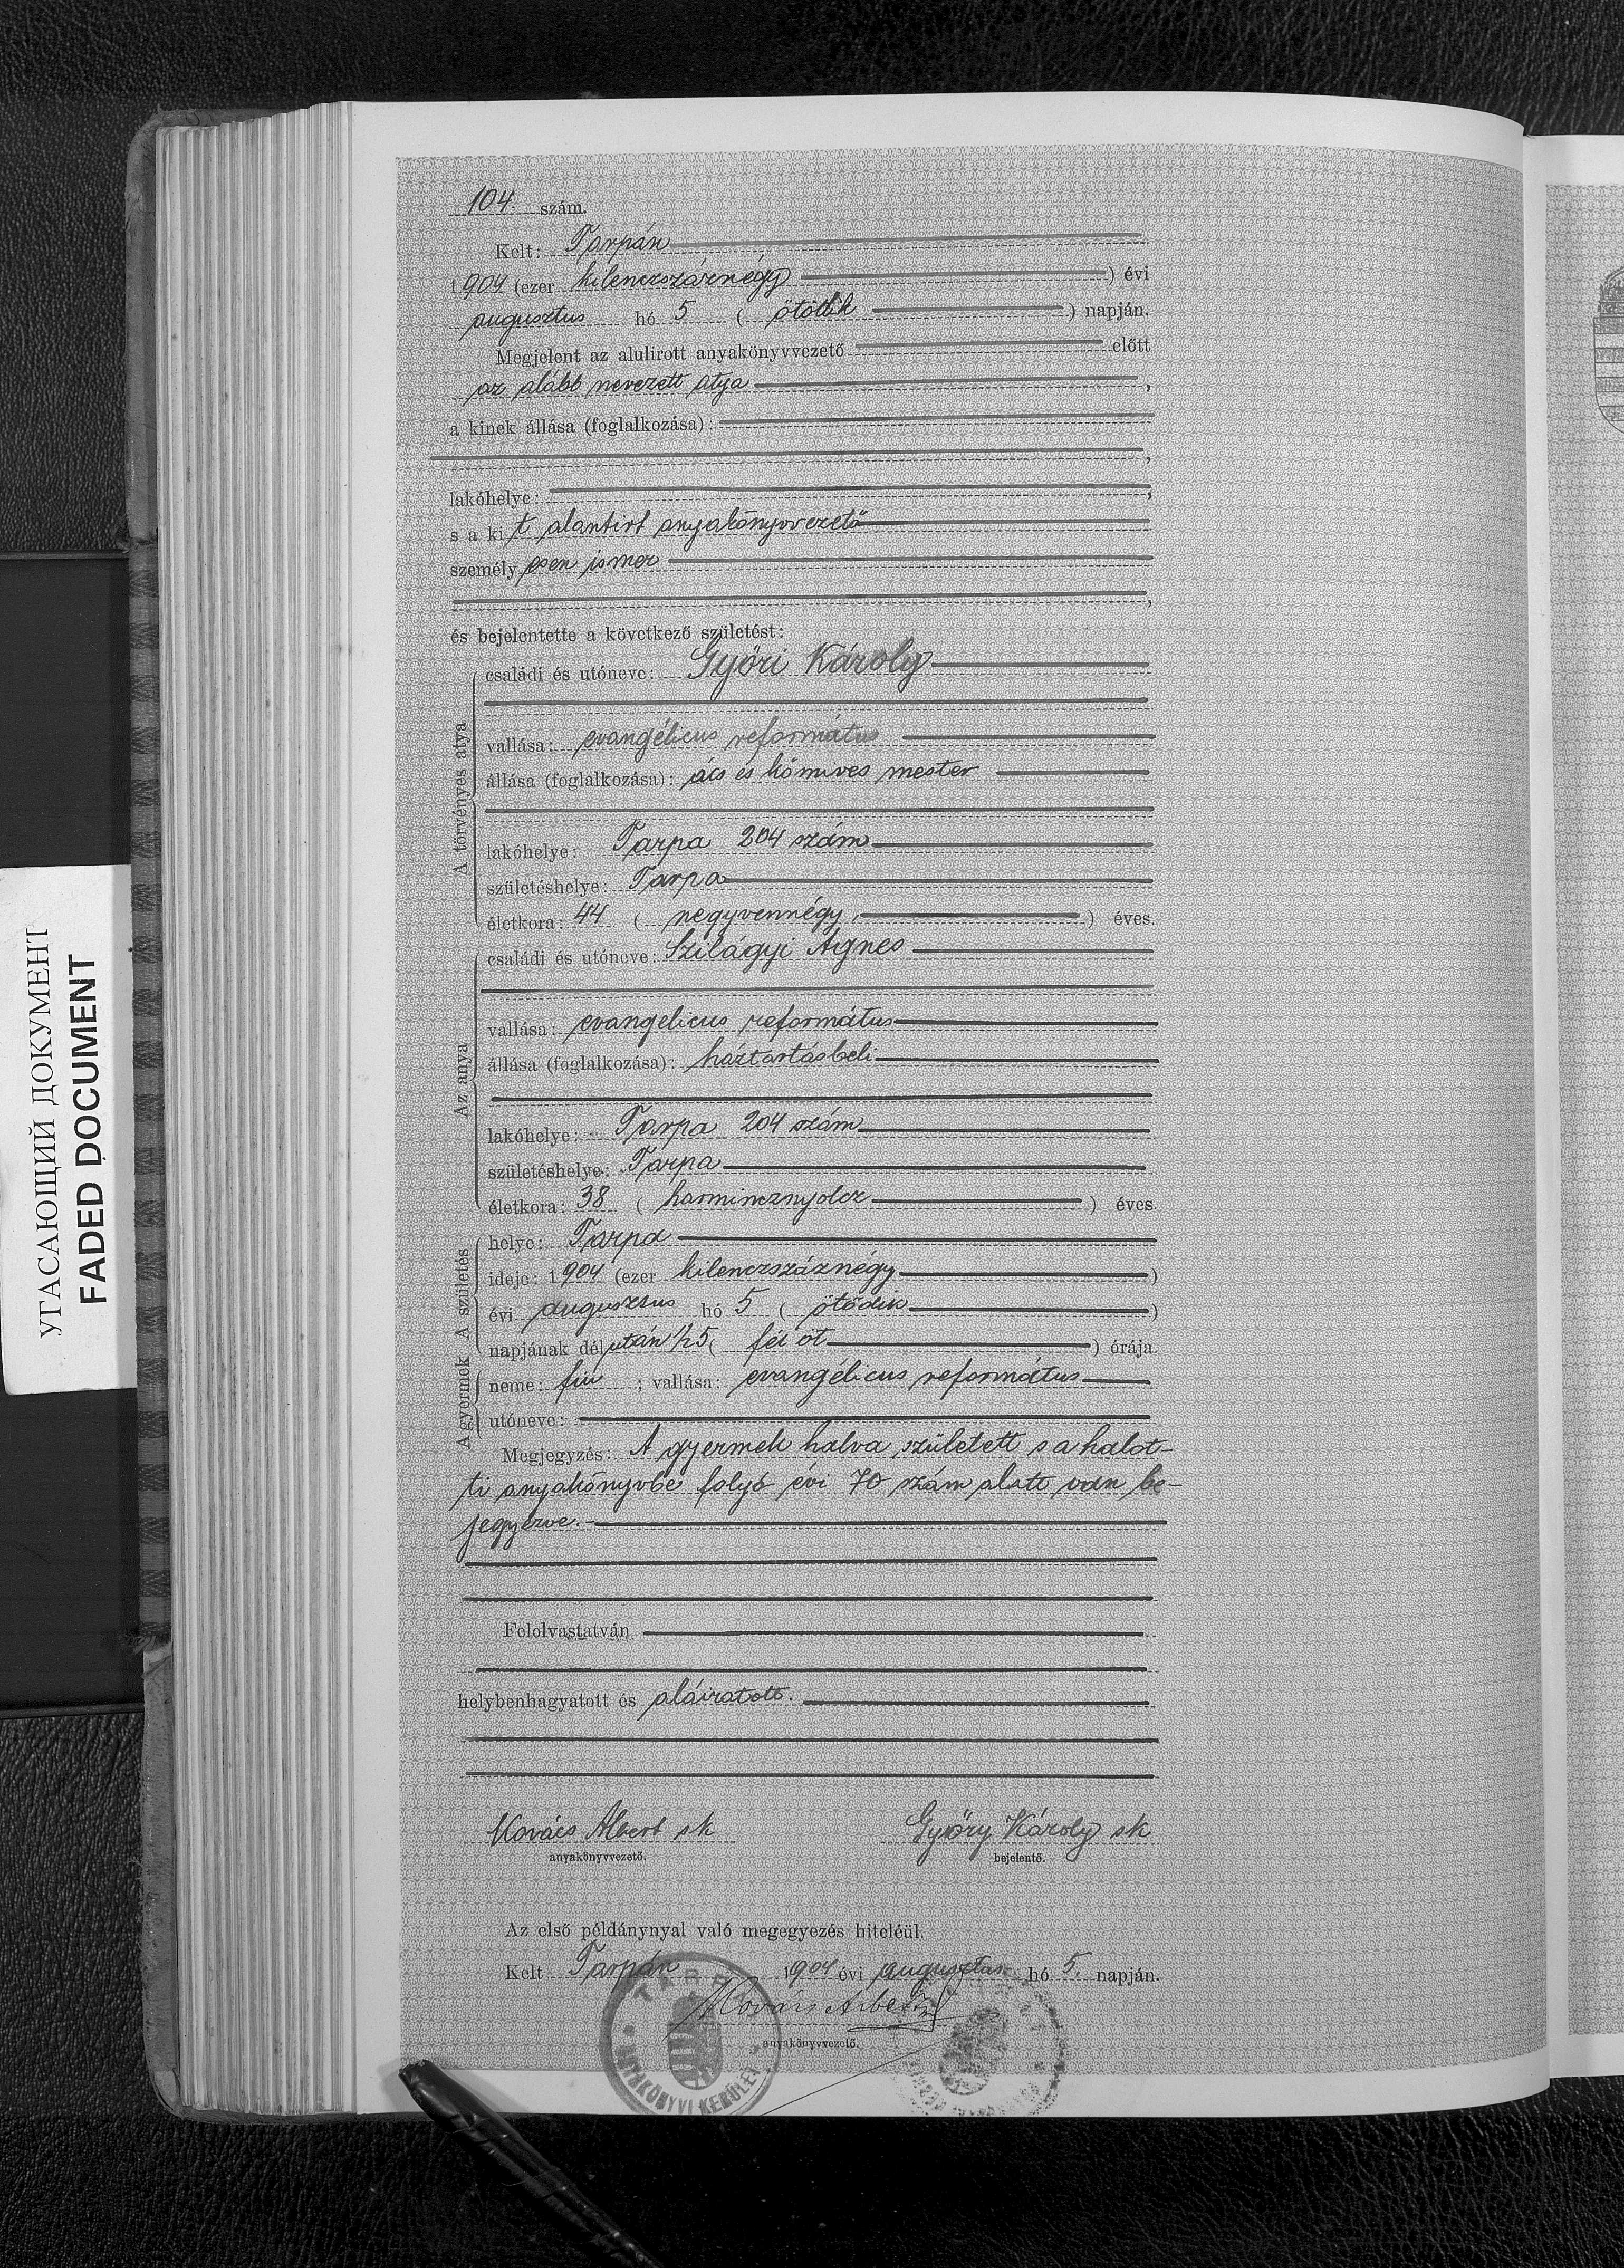 104. szám.
Kelt: Tarpán
1904 (ezer kilenczszáznégy) évi
augusztus hó 5 ( ötödik ) napján.
Megjelent az alulirott anyakönyvvezető előtt
az alább nevezett atya,
a kinek állása (foglalkozása):
,
lakóhelye: ,
s a kit alantirt anyakönyvvezető
személyesen ismer
,
és bejelentette a következő születést:
A törvényes atya
családi és utóneve: Győri Károly
vallása: evangélicus református
állása (foglalkozása): ács és kőmives mester
lakóhelye: Tarpa 204 szám
születéshelye: Tarpa
életkora: 44 ( negyvennégy. ) éves.
Az anya
családi és utóneve: Szilágyi Ágnes
vallása: evangelicus református
állása (foglalkozása): háztartásbeli
lakóhelye: Tarpa 204 szám
születéshelye: Tarpa
életkora: 38 ( harmincznyolcz ) éves
A születés
helye: Tarpa
ideje: 1904 (ezer kilenczszáznégy )
évi augusztus hó 5 ( ötödik )
napjának délután 1/2 5 ( fél öt ) órája.
A gyermek
neme: fiu ; vallása: evangélicus református
utóneve:
Megjegyzés: A gyermek halva született s a halot-
ti anyakönyvbe folyó évi 70 szám alatt van be-
jegyezve. -
Felolvastatván
helybenhagyatott és aláiratott.
Kovács Albert sk Győry Károly sk
anyakönyvvezető. bejelentő.
Az első példánynyal való megegyezés hiteléül.
Kelt Tarpán 1904 évi augusztus hó 5. napján.
Kovács Albert
anyakönyvvezető.
TARPA
ANYAKÖNYVI KERÜLET
УГАСАЮЩИЙ ДОКУМЕНТ
FADED DOCUMENT